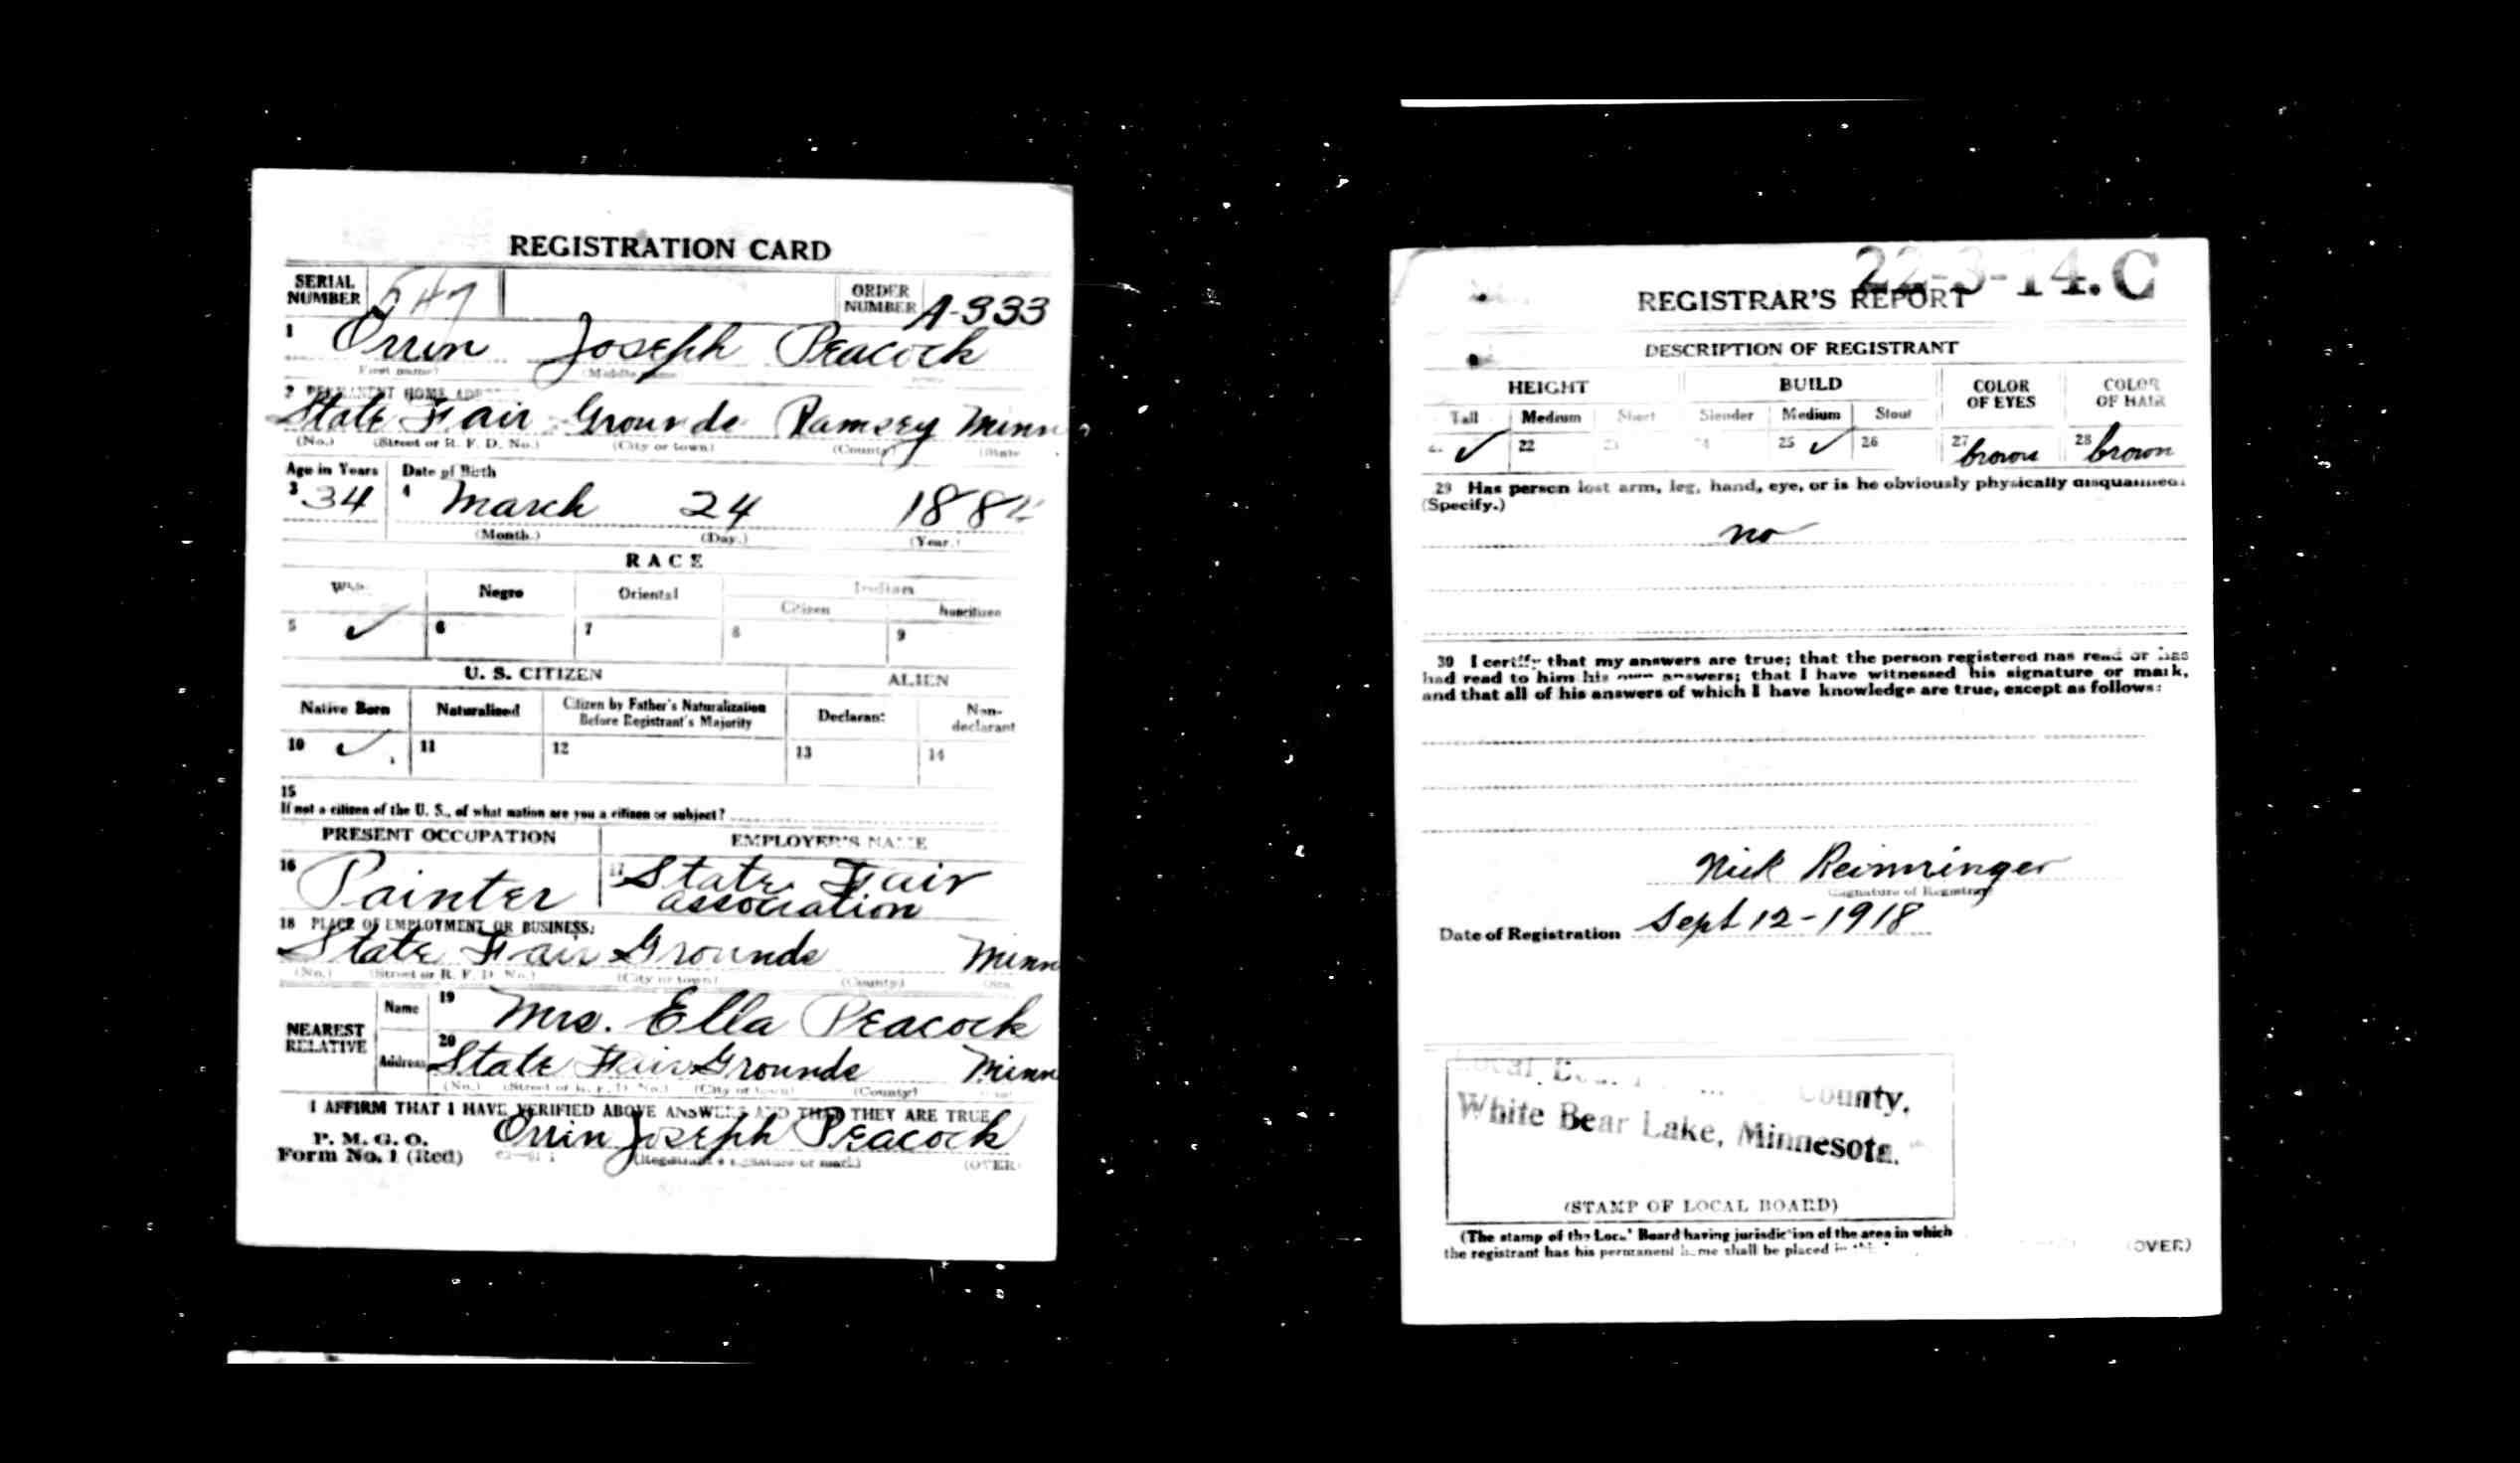 REGISTRATION CARD
SERIAL NUMBER 547 ORDER NUMBER A-333
1 Orrin Joseph Peacock
(First name) (Middle name)
2 PERMANENT HOME ADDRESS
State Fair Grounds Ramsey Minn
(No.) (Street or R. F. D. No.) (City or town) (County) (State)
Age in Years Date of Birth
3 34 4 March 24 1884
(Month.) (Day.) (Year.)
RACE
White Negro Oriental Indian
Citizen Noncitizen
5 ✓ 6 7 8 9
U. S. CITIZEN ALIEN
Native Born Naturalized Citizen by Father's Naturalization Before Registrant's Majority Declarant Non-declarant
10 ✓ 11 12 13 14
15
If not a citizen of the U. S., of what nation are you a citizen or subject?
PRESENT OCCUPATION EMPLOYER'S NAME
16 Painter 17 State Fair association
18 PLACE OF EMPLOYMENT OR BUSINESS:
State Fair Grounds Minn
(No.) (Street or R. F. D. No.) (City or town) (County) (State)
NEAREST RELATIVE Name 19 Mrs. Ella Peacock
Address 20 State Fair Grounds Minn
(No.) (Street or R. F. D. No.) (City or town) (County) (State)
I AFFIRM THAT I HAVE VERIFIED ABOVE ANSWERS AND THAT THEY ARE TRUE
P. M. G. O.
Form No. 1 (Red) Orrin Joseph Peacock
(Registrant's signature or mark) (OVER)
22-3-14. C
REGISTRAR'S REPORT
DESCRIPTION OF REGISTRANT
HEIGHT BUILD COLOR OF EYES COLOR OF HAIR
Tall Medium Short Slender Medium Stout
21 ✓ 22 23 24 25 ✓ 26 27 brown 28 brown
29 Has person lost arm, leg, hand, eye, or is he obviously physically disqualified?
(Specify.)
no
30 I certify that my answers are true; that the person registered has read or has
had read to him his own answers; that I have witnessed his signature or mark,
and that all of his answers of which I have knowledge are true, except as follows:
Nick Reinringer
(Signature of Registrar)
Date of Registration Sept 12-1918
Local County,
White Bear Lake, Minnesota.
(STAMP OF LOCAL BOARD)
(The stamp of the Local Board having jurisdiction of the area in which
the registrant has his permanent home shall be placed in this
(OVER)